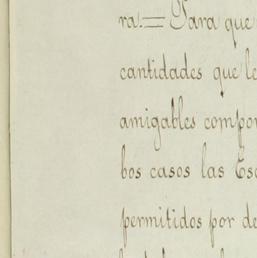 ra.= Para que
cantidades que le
amigables compo
bos casos las Esc
permitidos por de